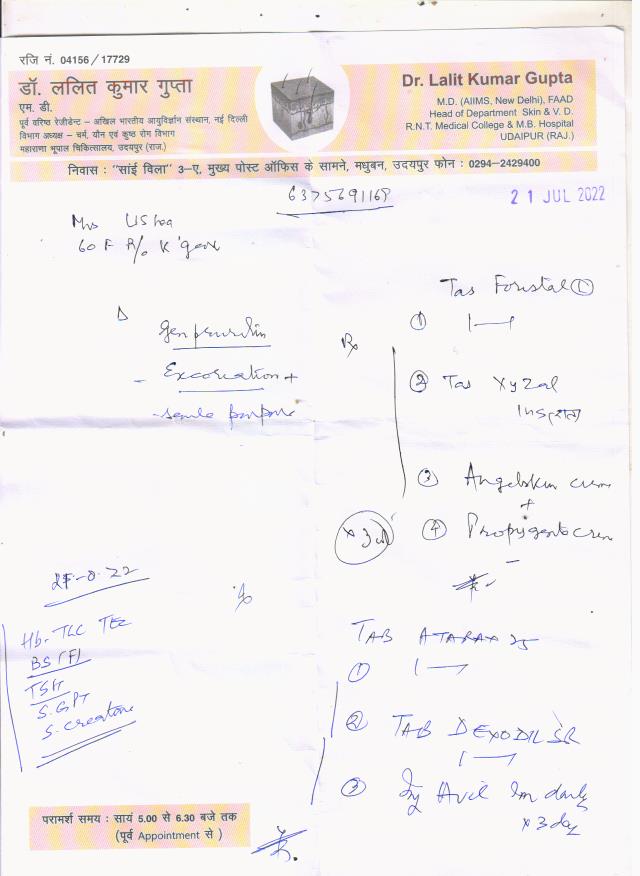 रजि नं. 04156/17729
डॉ. ललित कुमार गुप्ता
एम. डी.
पूर्व वरिष्ठ रेजीडेन्ट – अखिल भारतीय आयुर्विज्ञान संस्थान, नई दिल्ली
विभाग अध्यक्ष – चर्म, यौन एवं कुष्ठ रोग विभाग
महाराणा भूपाल चिकित्सालय, उदयपुर (राज.)
Dr. Lalit Kumar Gupta
M.D. (AIIMS, New Delhi), FAAD
Head of Department Skin & V. D.
R.N.T. Medical College & M.B. Hospital
UDAIPUR (RAJ.)
निवास : "सांई विला" 3–ए, मुख्य पोस्ट ऑफिस के सामने, मधुबन, उदयपुर फोन : 0294–2429400
6375691169
21 JUL 2022
Mrs Usha
60 F R/o
Rx
①
Excoriation +
② Tab Xyzal
③ cream
+
④ cream
Hb-TLC
BS (F)
TSH
S. GPT
S. Creatinine
TAB ATARAX 25
①
② TAB DEXODIL SR
③ Inj Avil Im daily
x 3 day
परामर्श समय : सायं 5.00 से 6.30 बजे तक
(पूर्व Appointment से )